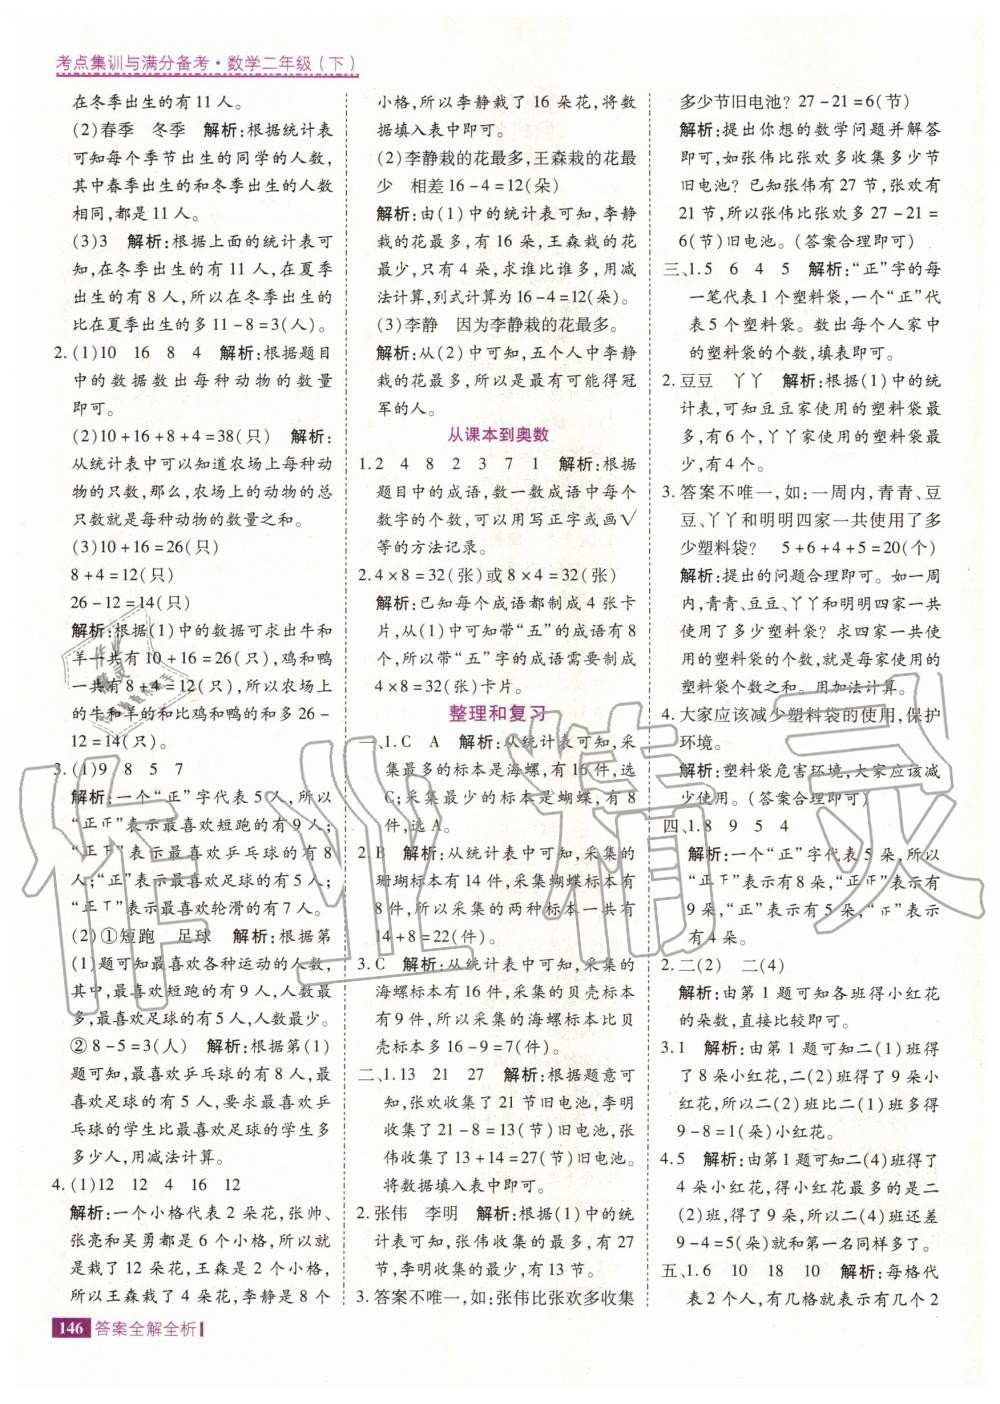 考点集训与满分备考·数学二年级(下)
在冬季出生的有11人。
(2)春季 冬季 解析:根据统计表
可知每个季节出生的同学的人数,
其中春季出生的和冬季出生的人数
相同,都是11人。
(3)3 解析:根据上面的统计表可
知,在冬季出生的有11人,在夏季
出生的有8人,所以在冬季出生的
比在夏季出生的多11-8=3(人)。
2.(1)10 16 8 4 解析:根据题目
中的数据数出每种动物的数量
即可。
(2)10+16+8+4=38(只) 解析:
从统计表中可以知道农场上每种动
物的只数,那么,农场上的动物的总
只数就是每种动物的数量之和。
(3)10+16=26(只)
8+4=12(只)
26-12=14(只)
解析:根据(1)中的数据可求出牛和
羊一共有10+16=26(只),鸡和鸭
一共有8+4=12(只),所以农场上
的牛和羊的和比鸡和鸭的和多26-
12=14(只)。
3.(1)9 8 5 7
解析:一个“正”字代表5人,所以
“正正”表示最喜欢短跑的有9人;
“正下”表示最喜欢乒乓球的有8
人;“正”表示最喜欢足球的有5人;
“正丅”表示最喜欢轮滑的有7人。
(2)①短跑 足球 解析:根据第
(1)题可知最喜欢各种运动的人数,
其中最喜欢短跑的有9人,人数最
多,最喜欢足球的有5人,人数最少。
②8-5=3(人) 解析:根据第(1)
题可知,最喜欢乒乓球的有8人,最
喜欢足球的有5人,要求最喜欢乒
乓球的学生比最喜欢足球的学生多
多少人,用减法计算。
4.(1)12 12 4 16 12
解析:一个小格代表2朵花,张帅、
张亮和吴勇都是6个小格,所以就
是栽了12朵花,王森是2个小格,
所以王森栽了4朵花,李静是8个
146 答案全解全析
小格,所以李静栽了16朵花,将数
据填入表中即可。
(2)李静栽的花最多,王森栽的花最
少 相差16-4=12(朵)
解析:由(1)中的统计表可知,李静
栽的花最多,有16朵,王森栽的花
最少,只有4朵,求谁比谁多,用减
法计算,列式计算为16-4=12(朵)。
(3)李静 因为李静栽的花最多。
解析:从(2)中可知,五个人中李静
栽的花最多,所以是最有可能得冠
军的人。
从课本到奥数
1.2 4 8 2 3 7 1 解析:根据
题目中的成语,数一数成语中每个
数字的个数,可以用写正字或画√
等的方法记录。
2.4×8=32(张)或8×4=32(张)
解析:已知每个成语都制成4张卡
片,从(1)中可知带“五”的成语有8
个,所以带“五”字的成语需要制成
4×8=32(张)卡片。
整理和复习
一、1.C A 解析:从统计表可知,采
集最多的标本是海螺,有16件,选
C;采集最少的标本是蝴蝶,有8
件,选A。
2.B 解析:从统计表可知,采集的
珊瑚标本有14件,采集蝴蝶标本有
8件,所以采集的两种标本一共有
14+8=22(件)。
3.C 解析:从统计表可知,采集的
海螺标本有16件,采集的贝壳标本
有9件,所以采集的海螺标本比贝
壳标本多16-9=7(件)。
二、1.13 21 27 解析:根据题意可
知,张欢收集了21节旧电池,李明
收集了21-8=13(节)旧电池,张
伟收集了13+14=27(节)旧电池。
将数据填入表中即可。
2.张伟 李明 解析:根据(1)中的统
计表可知,张伟收集的最多,有27
节,李明收集的最少,有13节。
3.答案不唯一,如:张伟比张欢多收集
多少节旧电池?27-21=6(节)
解析:提出你想的数学问题并解答
即可,如张伟比张欢多收集多少节
旧电池?已知张伟有27节,张欢有
21节,所以张伟比张欢多27-21=
6(节)旧电池。(答案合理即可)
三、1.5 6 4 5 解析:“正”字的每
一笔代表1个塑料袋,一个“正”代
表5个塑料袋。数出每个人家中
的塑料袋的个数,填表即可。
2.豆豆 丫丫 解析:根据(1)中的统
计表,可知豆豆家使用的塑料袋最
多,有6个,丫丫家使用的塑料袋最
少,有4个。
3.答案不唯一,如:一周内,青青、豆
豆、丫丫和明明四家一共使用了多
少塑料袋? 5+6+4+5=20(个)
解析:提出的问题合理即可。如一周
内,青青、豆豆、丫丫和明明四家一共
使用了多少塑料袋?求四家一共使用
的塑料袋的个数,就是每家使用的
塑料袋个数之和。用加法计算。
4.大家应该减少塑料袋的使用,保护
环境。
解析:塑料袋危害环境,大家应该减
少使用。(答案合理即可)
四、1.8 9 5 4
解析:一个“正”字代表5朵,所以
“正下”表示有8朵,“正正”表示有
9朵,“正”表示有5朵,“正”表示
有4朵。
2.二(2) 二(4)
解析:由第1题可知各班得小红花
的朵数,直接比较即可。
3.1 解析:由第1题可知二(1)班得
了8朵小红花,二(2)班得了9朵
小红花,所以二(2)班比二(1)班多得
9-8=1(朵)小红花。
4.5 解析:由第1题可知二(4)班得了
4朵小红花,得小红花最多的是二
(2)班,得了9朵,所以二(4)班还差
9-4=5(朵)就和第一名同样多了。
五、1.6 10 18 10 解析:每格代
表2个人,有几格就表示有几个2
作业精灵